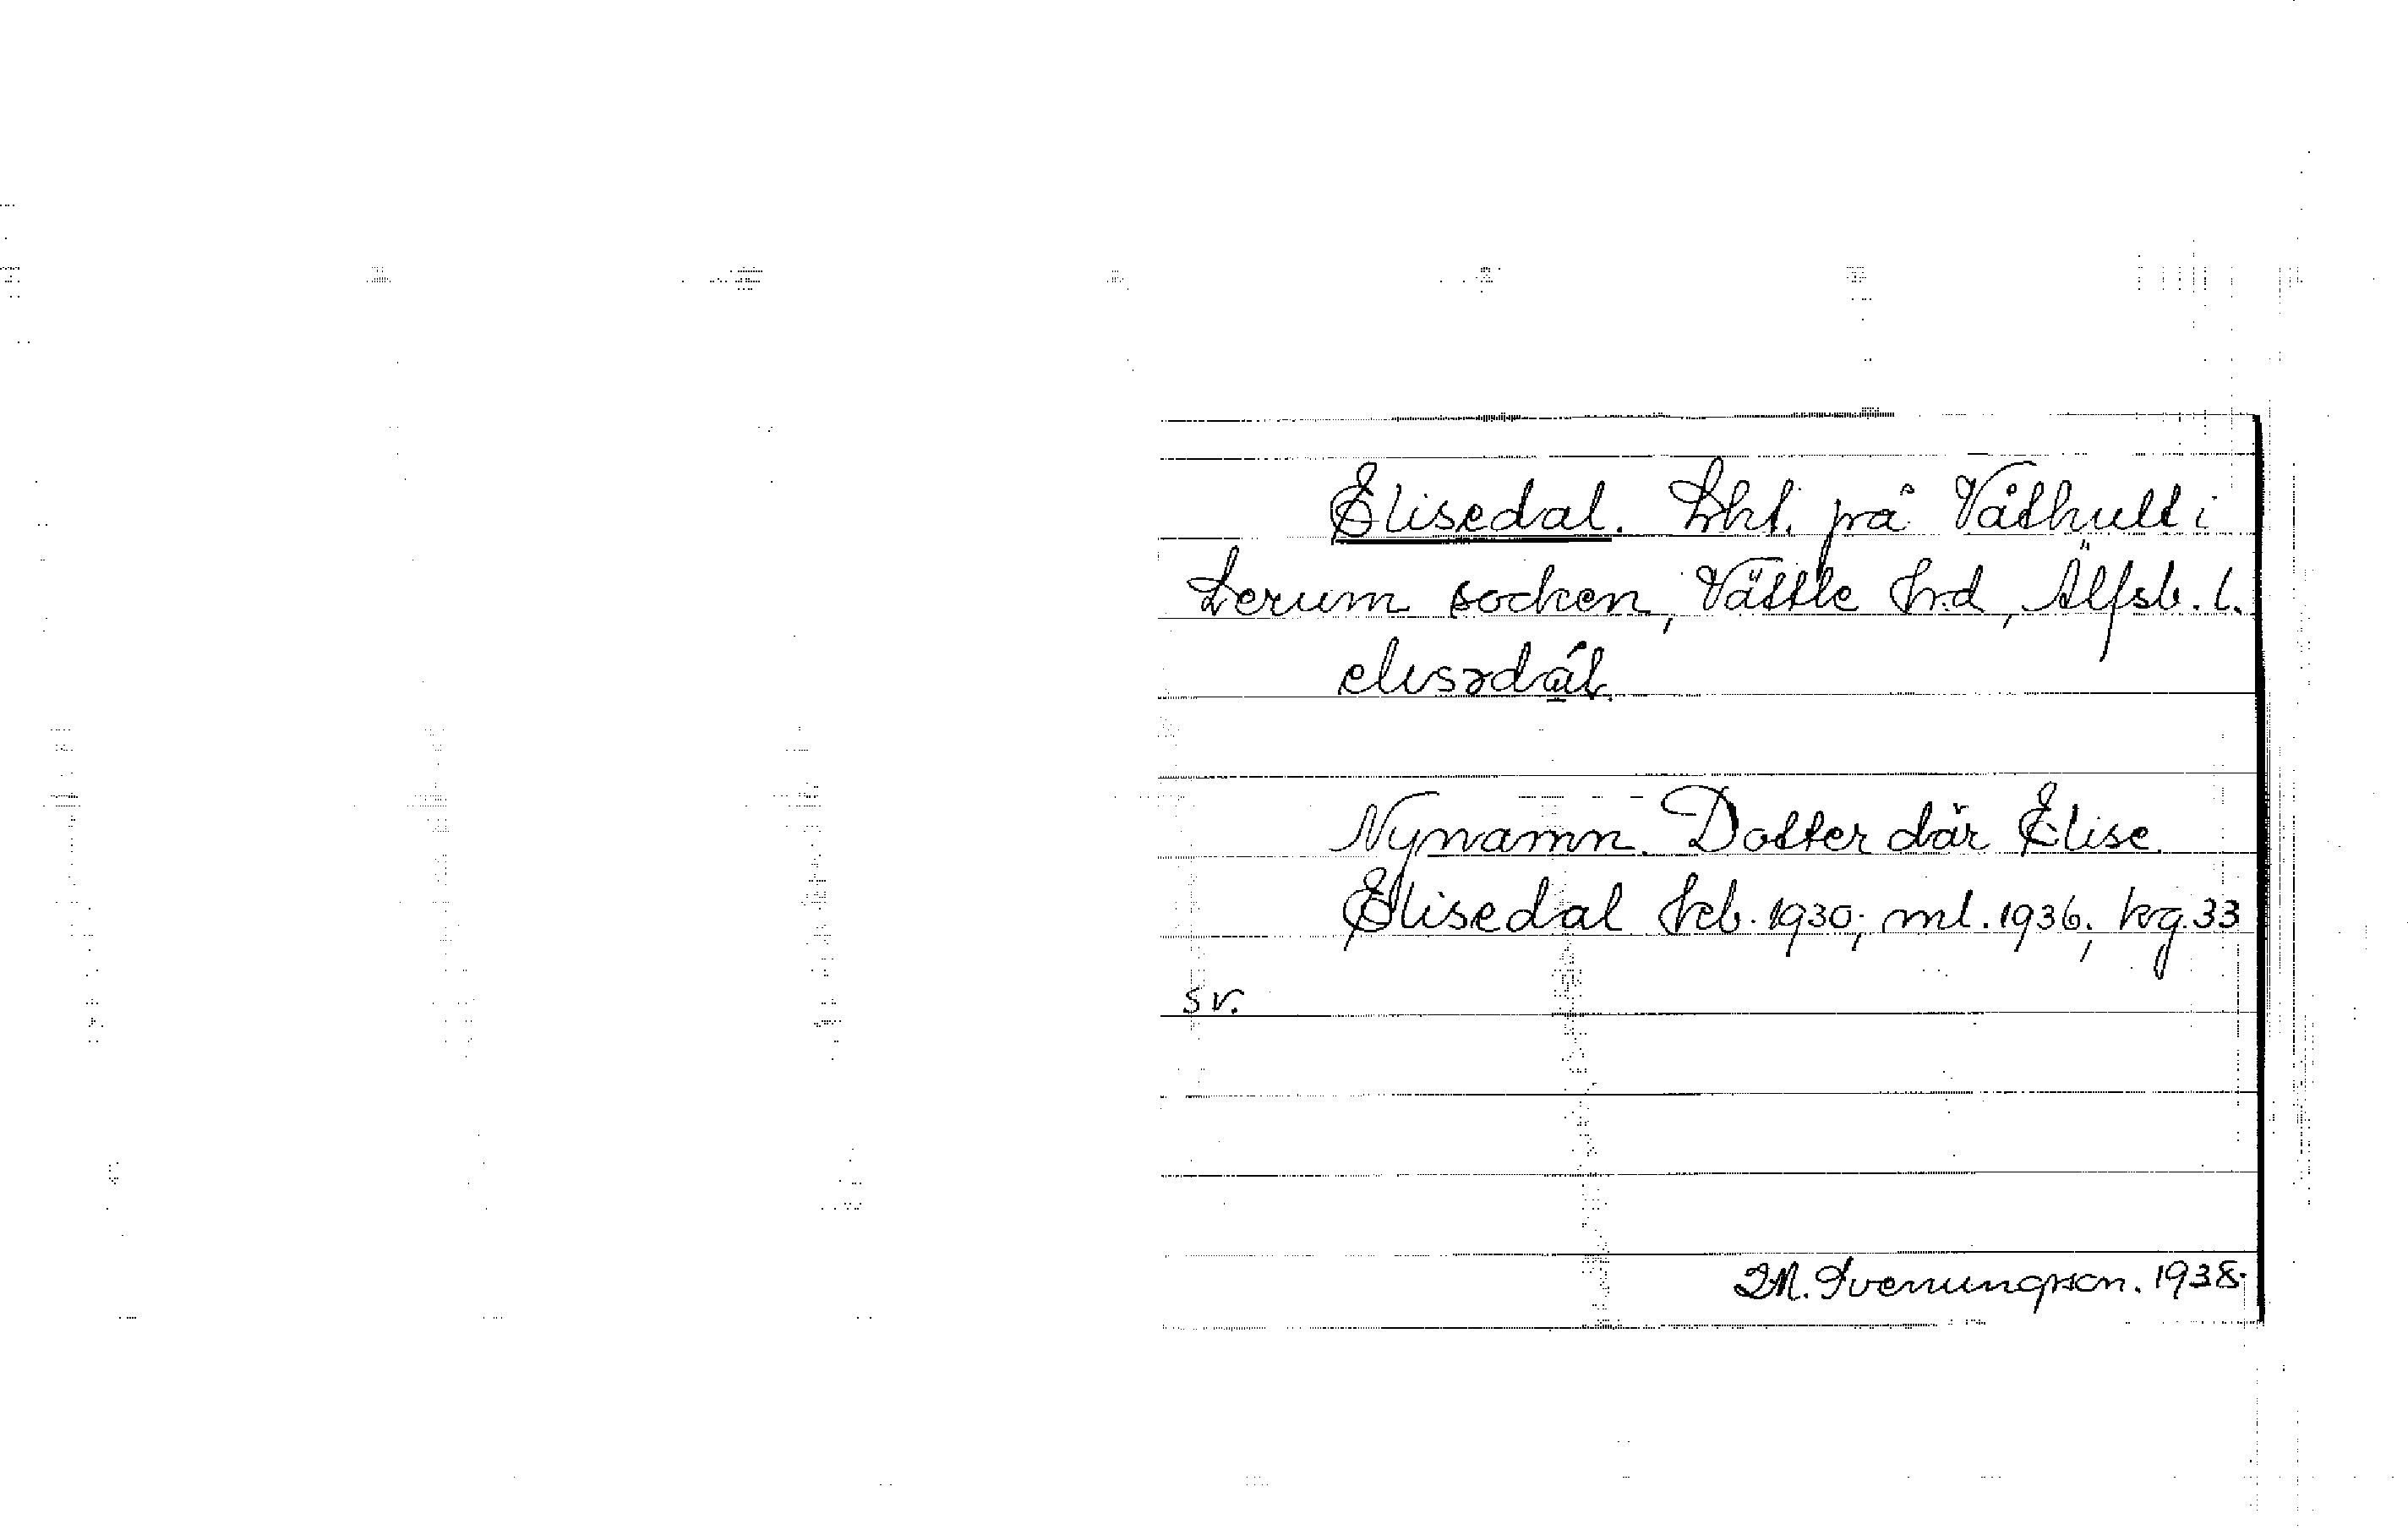 Elisedal. Lht. på Våthult i
Lerum socken, Vättle hrd, Älfsb. l.
elısədál.
Nynamn. Dotter där Elise.
Elisedal Jrb. 1930; ml. 1936; krg. 33
sv.
M. Svenungsson. 1938.